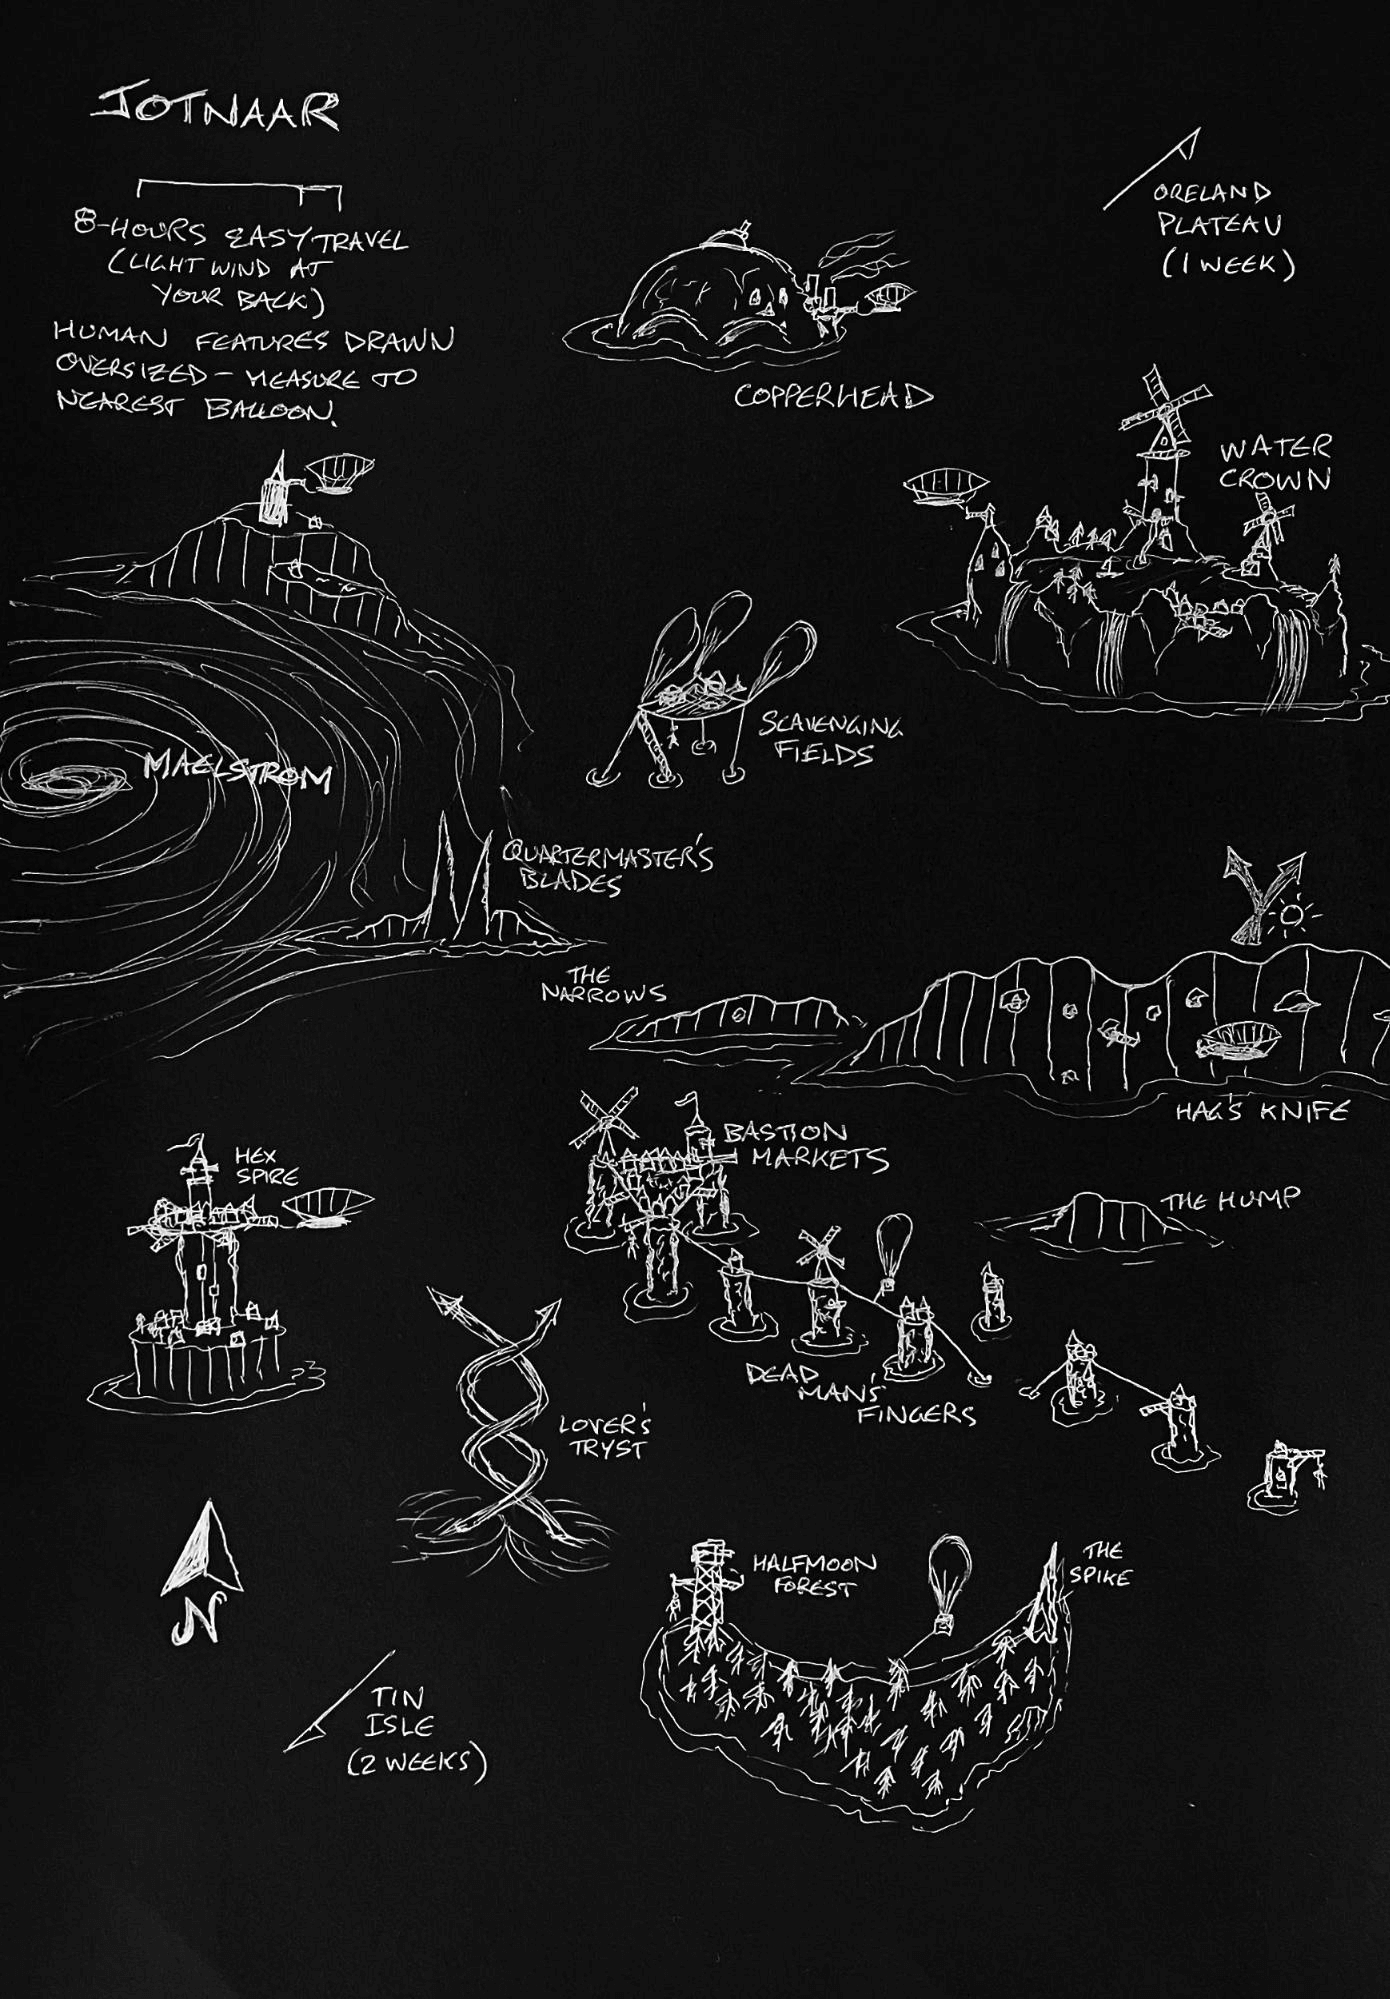 JOTNAAR
8-HOURS EASY TRAVEL
(LIGHT WIND AT
YOUR BACK)
HUMAN FEATURES DRAWN
OVERSIZED - MEASURE TO
NEAREST BALLOON.
ORELAND
PLATEAU
(1 WEEK)
COPPERHEAD
WATER
CROWN
SCAVENGING
FIELDS
MAELSTROM
QUARTERMASTER'S
BLADES
THE
NARROWS
HAG'S KNIFE
BASTION
MARKETS
HEX
SPIRE
THE HUMP
DEAD
MAN'S
FINGERS
LOVER'S
TRYST
N
HALFMOON
FOREST
THE
SPIKE
TIN
ISLE
(2 WEEKS)